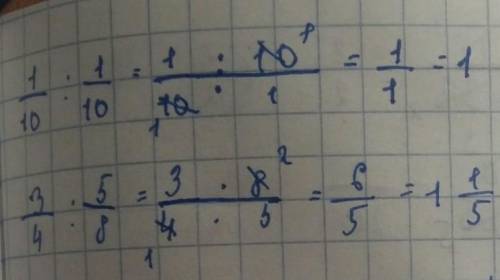 1/10 : 1/10 = 1 · 10 1 / 10 1 · 1 = 1/1 = 1
3/4 : 5/8 = 3 · 8 2 / 4 1 · 5 = 6/5 = 1 1/5